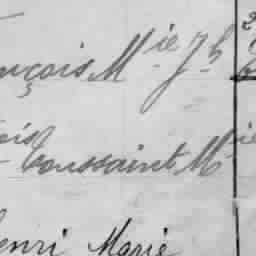 nçois Mie Jh
ois Toussaint Mie
enri Marie